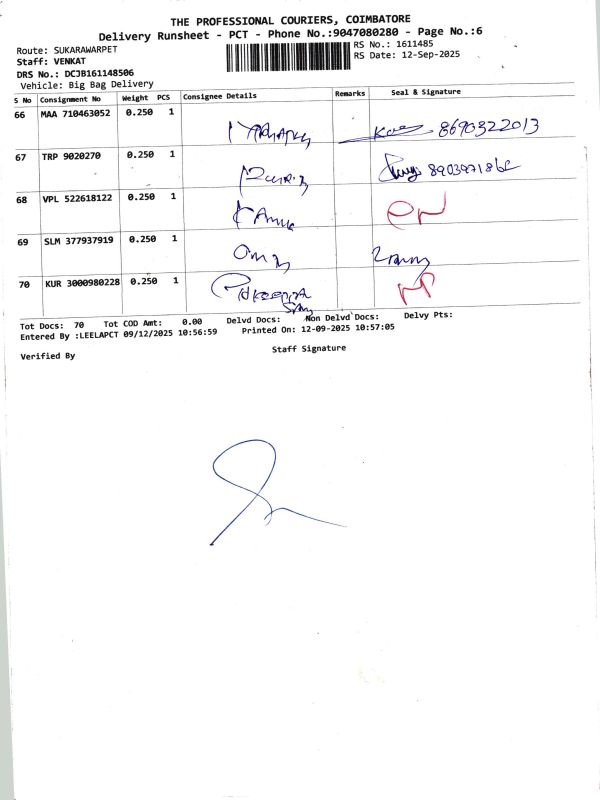 THE PROFESSIONAL COURIERS, COIMBATORE
Delivery Runsheet - PCT - Phone No.:9047080280 - Page No.:6
Route: SUKARAWARPET
RS No.: 1611485
Staff: VENKAT
RS Date: 12-Sep-2025
DRS No.: DCJB161148506
Vehicle: Big Bag Delivery
S No Consignment No Weight PCS Consignee Details Remarks Seal & Signature
66 MAA 710463052 0.250 1 8690322013
67 TRP 9020270 0.250 1
68 VPL 522618122 0.250 1
69 SLM 377937919 0.250 1
70 KUR 3000980228 0.250 1
Tot Docs: 70 Tot COD Amt: 0.00 Delvd Docs: Non Delvd Docs: Delvy Pts:
Entered By :LEELAPCT 09/12/2025 10:56:59 Printed On: 12-09-2025 10:57:05
Verified By Staff Signature